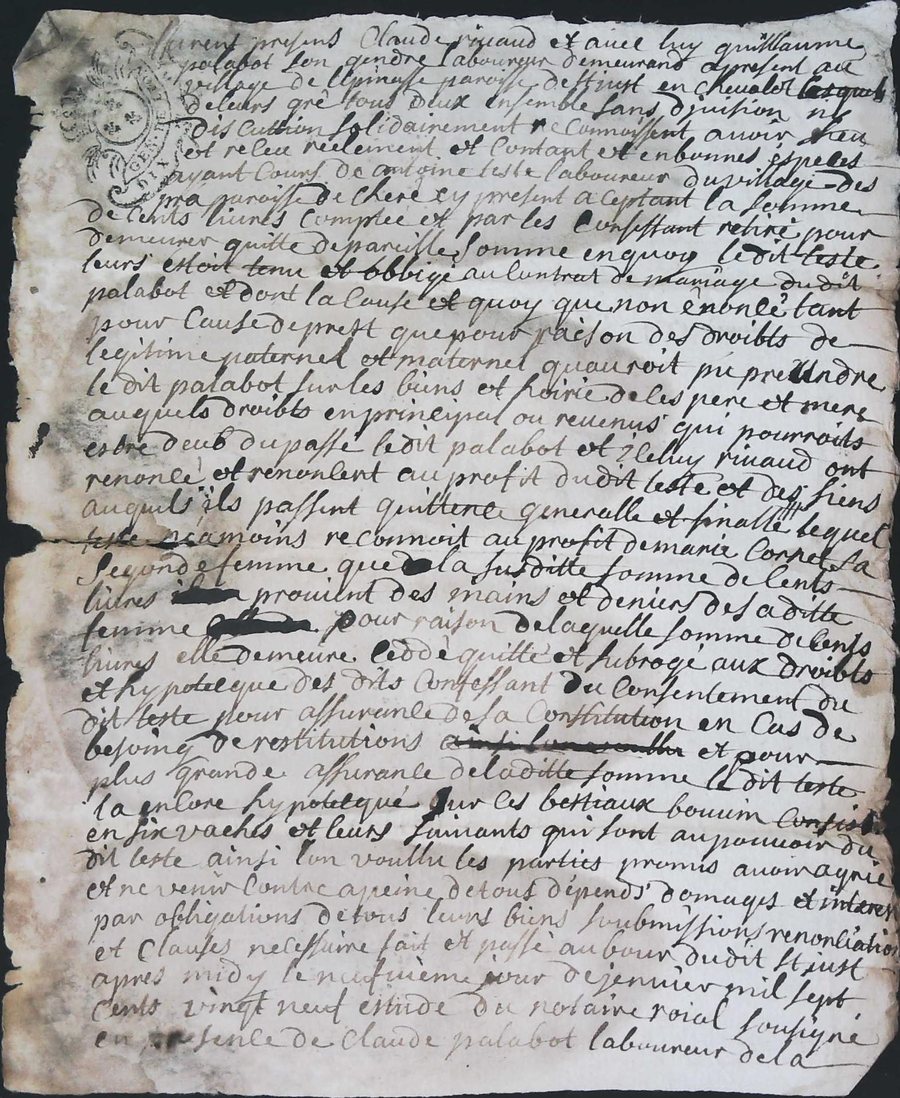 furent presens Claude riuaud et auec luy guillaume
palabot son gendre laboureur demeurand apresent au
village de lepinasse paroisse de St just en cheualot lesquels
de leurs gré tous deux ensemble sans diuision ni
discuttion solidairement reconnoissent auoir heu
et receu reelement et contant et en bonnes especes
ayant cours de antoine teste laboureur du village des
pra paroisse de chere cy present aceptant la somme
de cents liures comptée et par les confessant retiré pour
demeurer quitte de pareille somme en quoy ledit teste
leurs estoit tenu et obbligé au contrat de mariage dudit
palabot et dont la cause et quoy que non enoncé tant
pour cause de prest que pour raison des droibts de
legitime paternel et maternel quauroit pu preendre
ledit palabot sur les biens et hoirie de ses pere et mere
auquels droibts en principal ou reuenus qui pourroits
estre deub du passé ledit palabot et iceluy riuaud ont
renoncé et renoncent au profit dudit teste et des siens
auquils ils passent quittence generalle et finalle lequel
teste néamoins reconnoit au profit de marie Cornet sa
segonde femme que la susditte somme de cents
liures prouient des mains et deniers de saditte
femme pour raison de laquelle somme de cents
liures elle demeure ceddé quitte et subrogé aux droibts
et hypotecque des dits confessant du consentement du
dit teste pour assurance de sa constitution en cas de
besoing de restitutions ainsi lon voullu et pour
plus grande assurance de laditte somme le dit teste
la encore hypotecqué sur ces bestiaux bouuin consist
en six vaches et leurs suiuants qui sont au pouuoir du
dit teste ainsi lon voullu les parties promis auoir agrée
et ne venir contre apeine de tous dépends domages et interes
par obligations de tous leurs biens soubmissions renonciation
et clauses necessaire fait et passé au bour dudit St just
apres midy le neufuième jour de jenuier mil sept
cents vingt neuf estude du notaire roial sousigné
en presence de Claude palabot laboureur de la